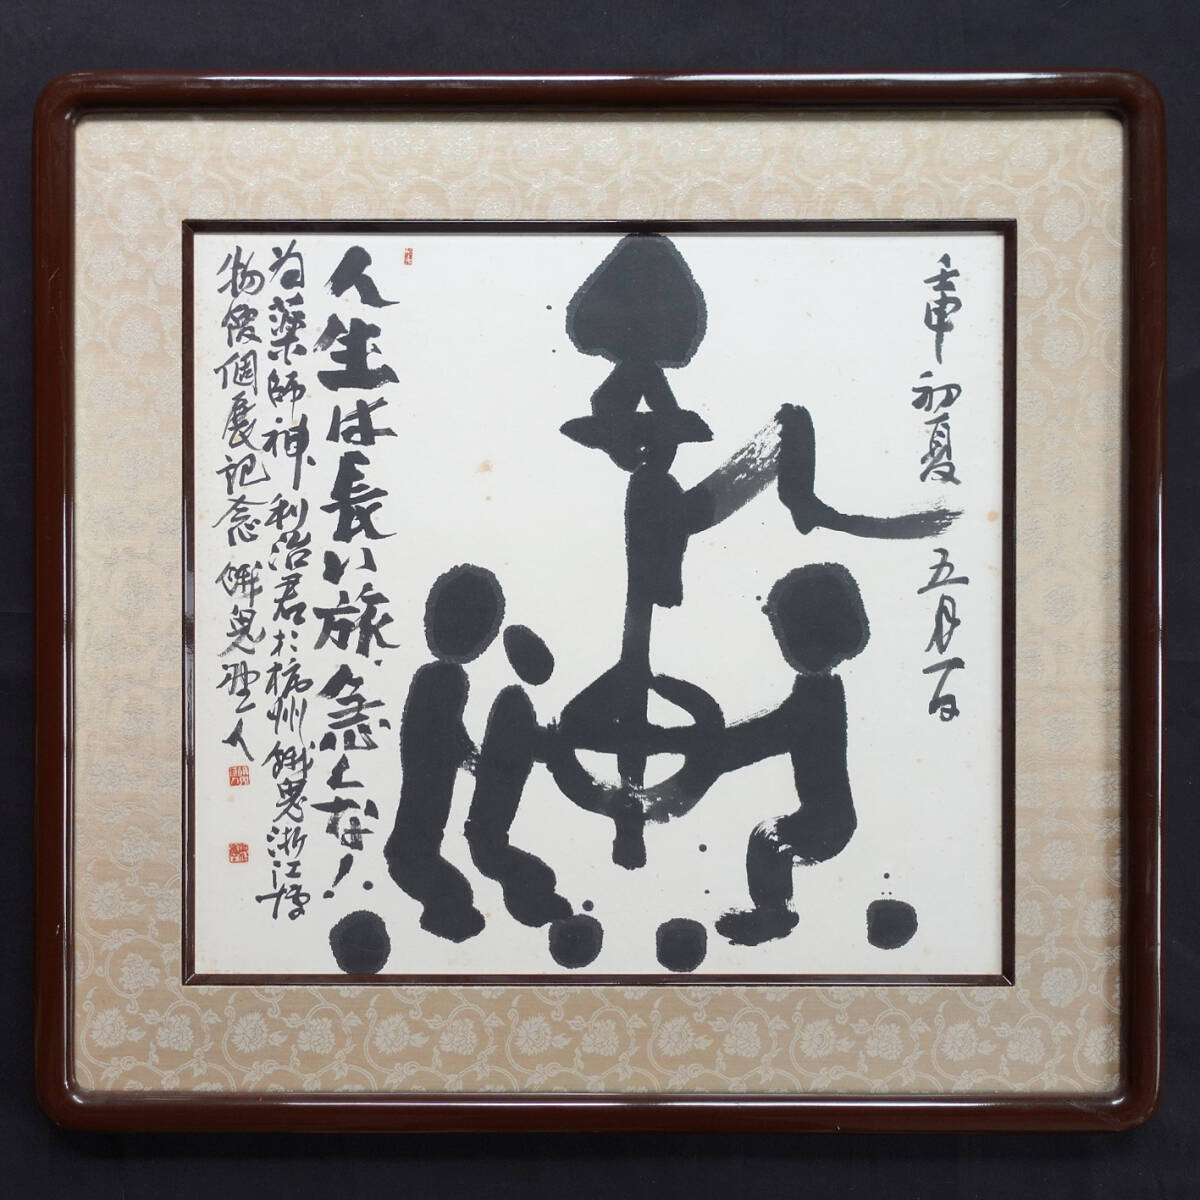 壬申初夏 五月一日
人生は長い旅、急ぐな!
為薬師神、利治君於杭州餓鬼浙江博
物館個展記念 餓鬼野人